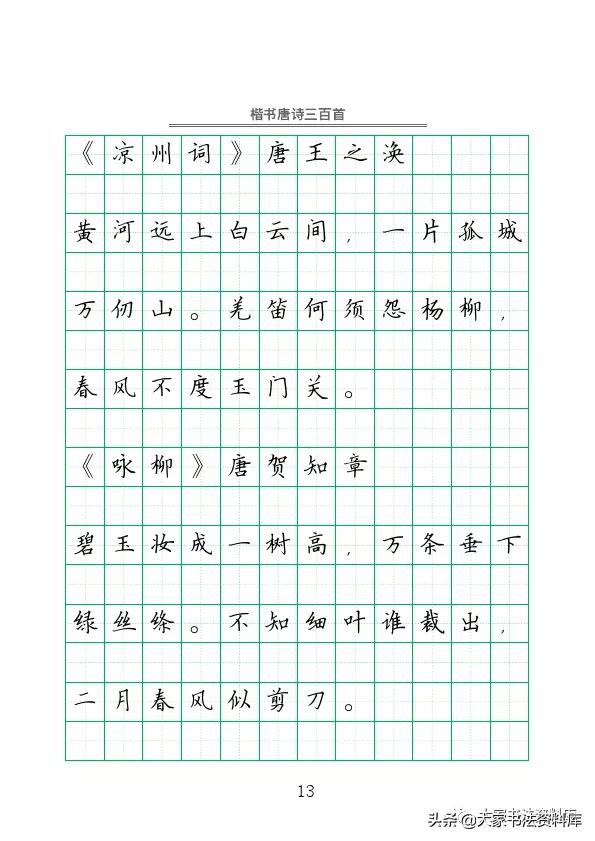 楷书唐诗三百首
《凉州词》唐王之涣
黄河远上白云间，一片孤城
万仞山。羌笛何须怨杨柳，
春风不度玉门关。
《咏柳》唐贺知章
碧玉妆成一树高，万条垂下
绿丝绦。不知细叶谁裁出，
二月春风似剪刀。
13
大家书法资料库
头条@大家书法资料库